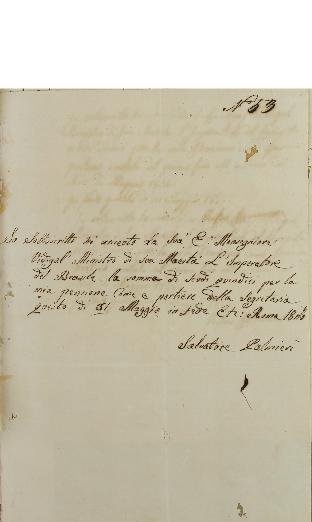 Nº 53
Io Sottoscritto ò ricevuto da Sua E. Monsignore
Vidigal Ministro di Sua Maestà L'Imperatore
del Brasile la somma di scudi quindici per la
mia pensione come portiere della Segretaria
questo dì 31 Maggio in fede Etc: Roma
Salvatore Palmieri